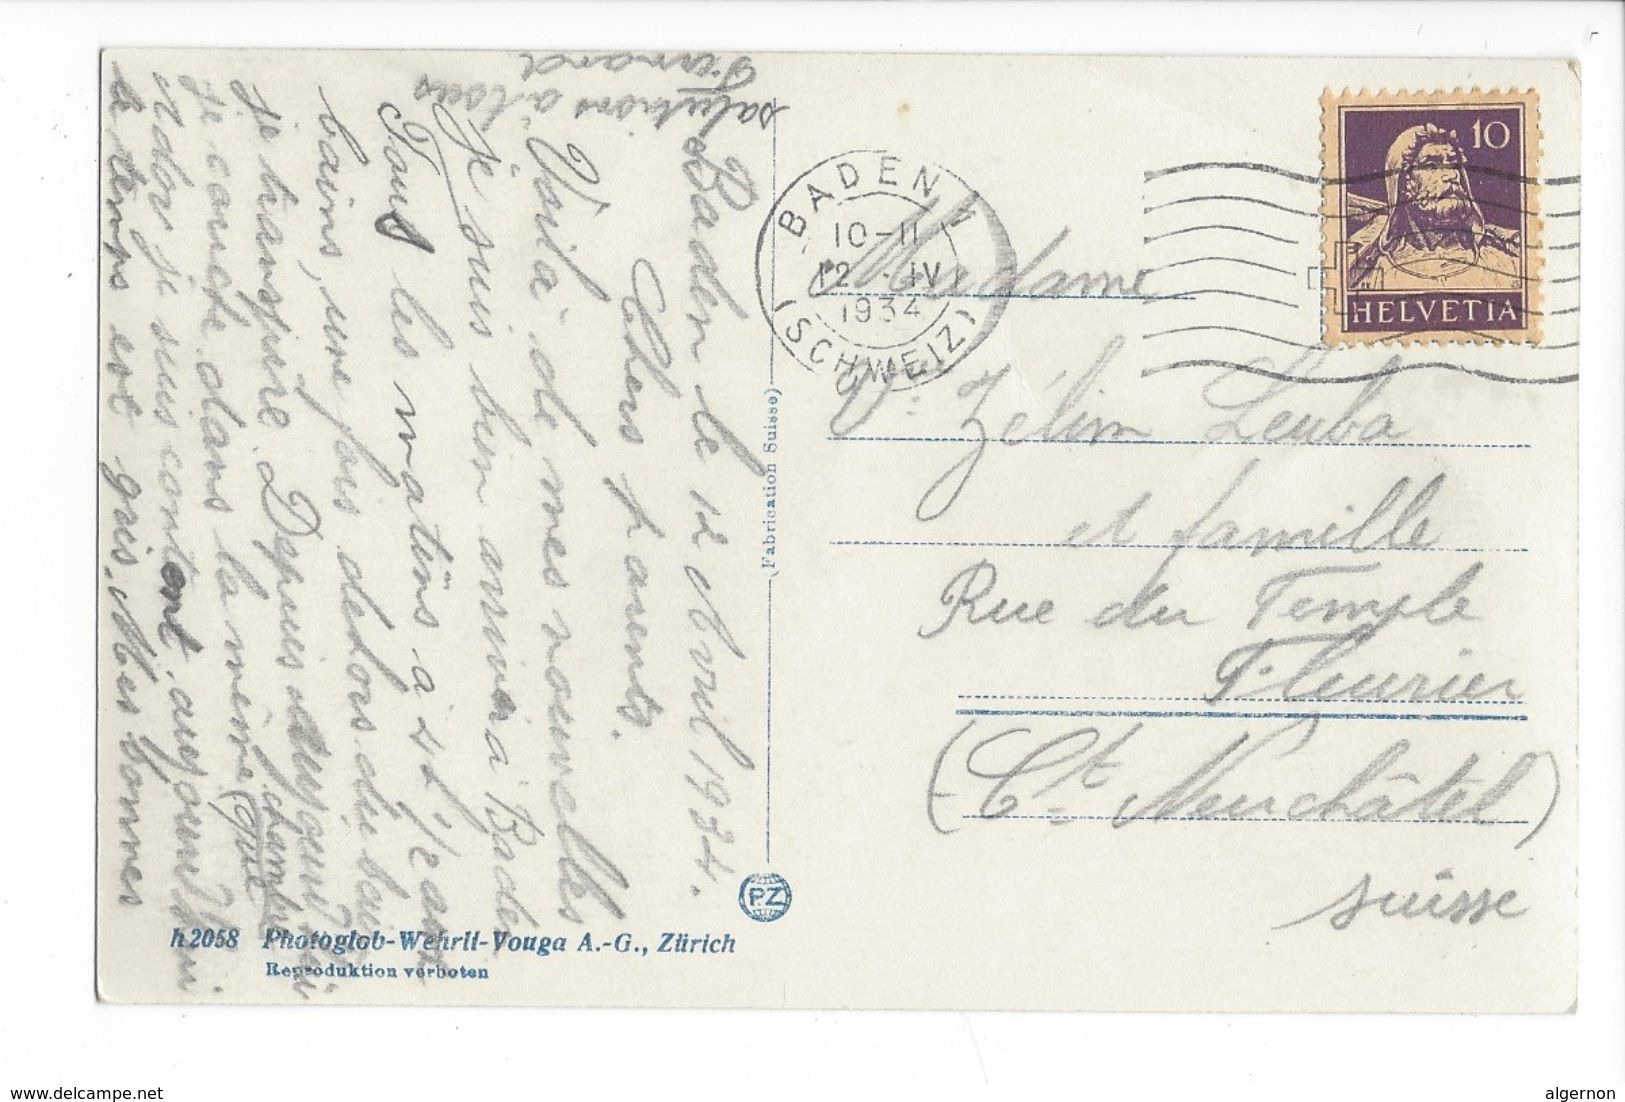 Baden le 12 Avril 1934.
Chers parents.
Voilà de mes nouvelles
Je suis bien arrivé à Baden
Tous les matins à 4 1/2 aux
bains, une fois dedors du bain
je transpire. Depuis aujourd'hui
je couche dans la même chambre
que
Nador je suis content, aujourd'hui
le temps est gris. Mes bonnes
salutations à tous
BADEN 1
10-11
12.IV
1934
(SCHWEIZ)
10
HELVETIA
Madame
Vve Zélim Leuba
et famille
Rue du Temple
Fleurier
(Ct. Neuchâtel)
Suisse
(Fabrication Suisse)
P.Z
h 2058 Photoglob-Wehrli-Vouga A.-G., Zürich
Reproduktion verboten
www.delcampe.net
algernon